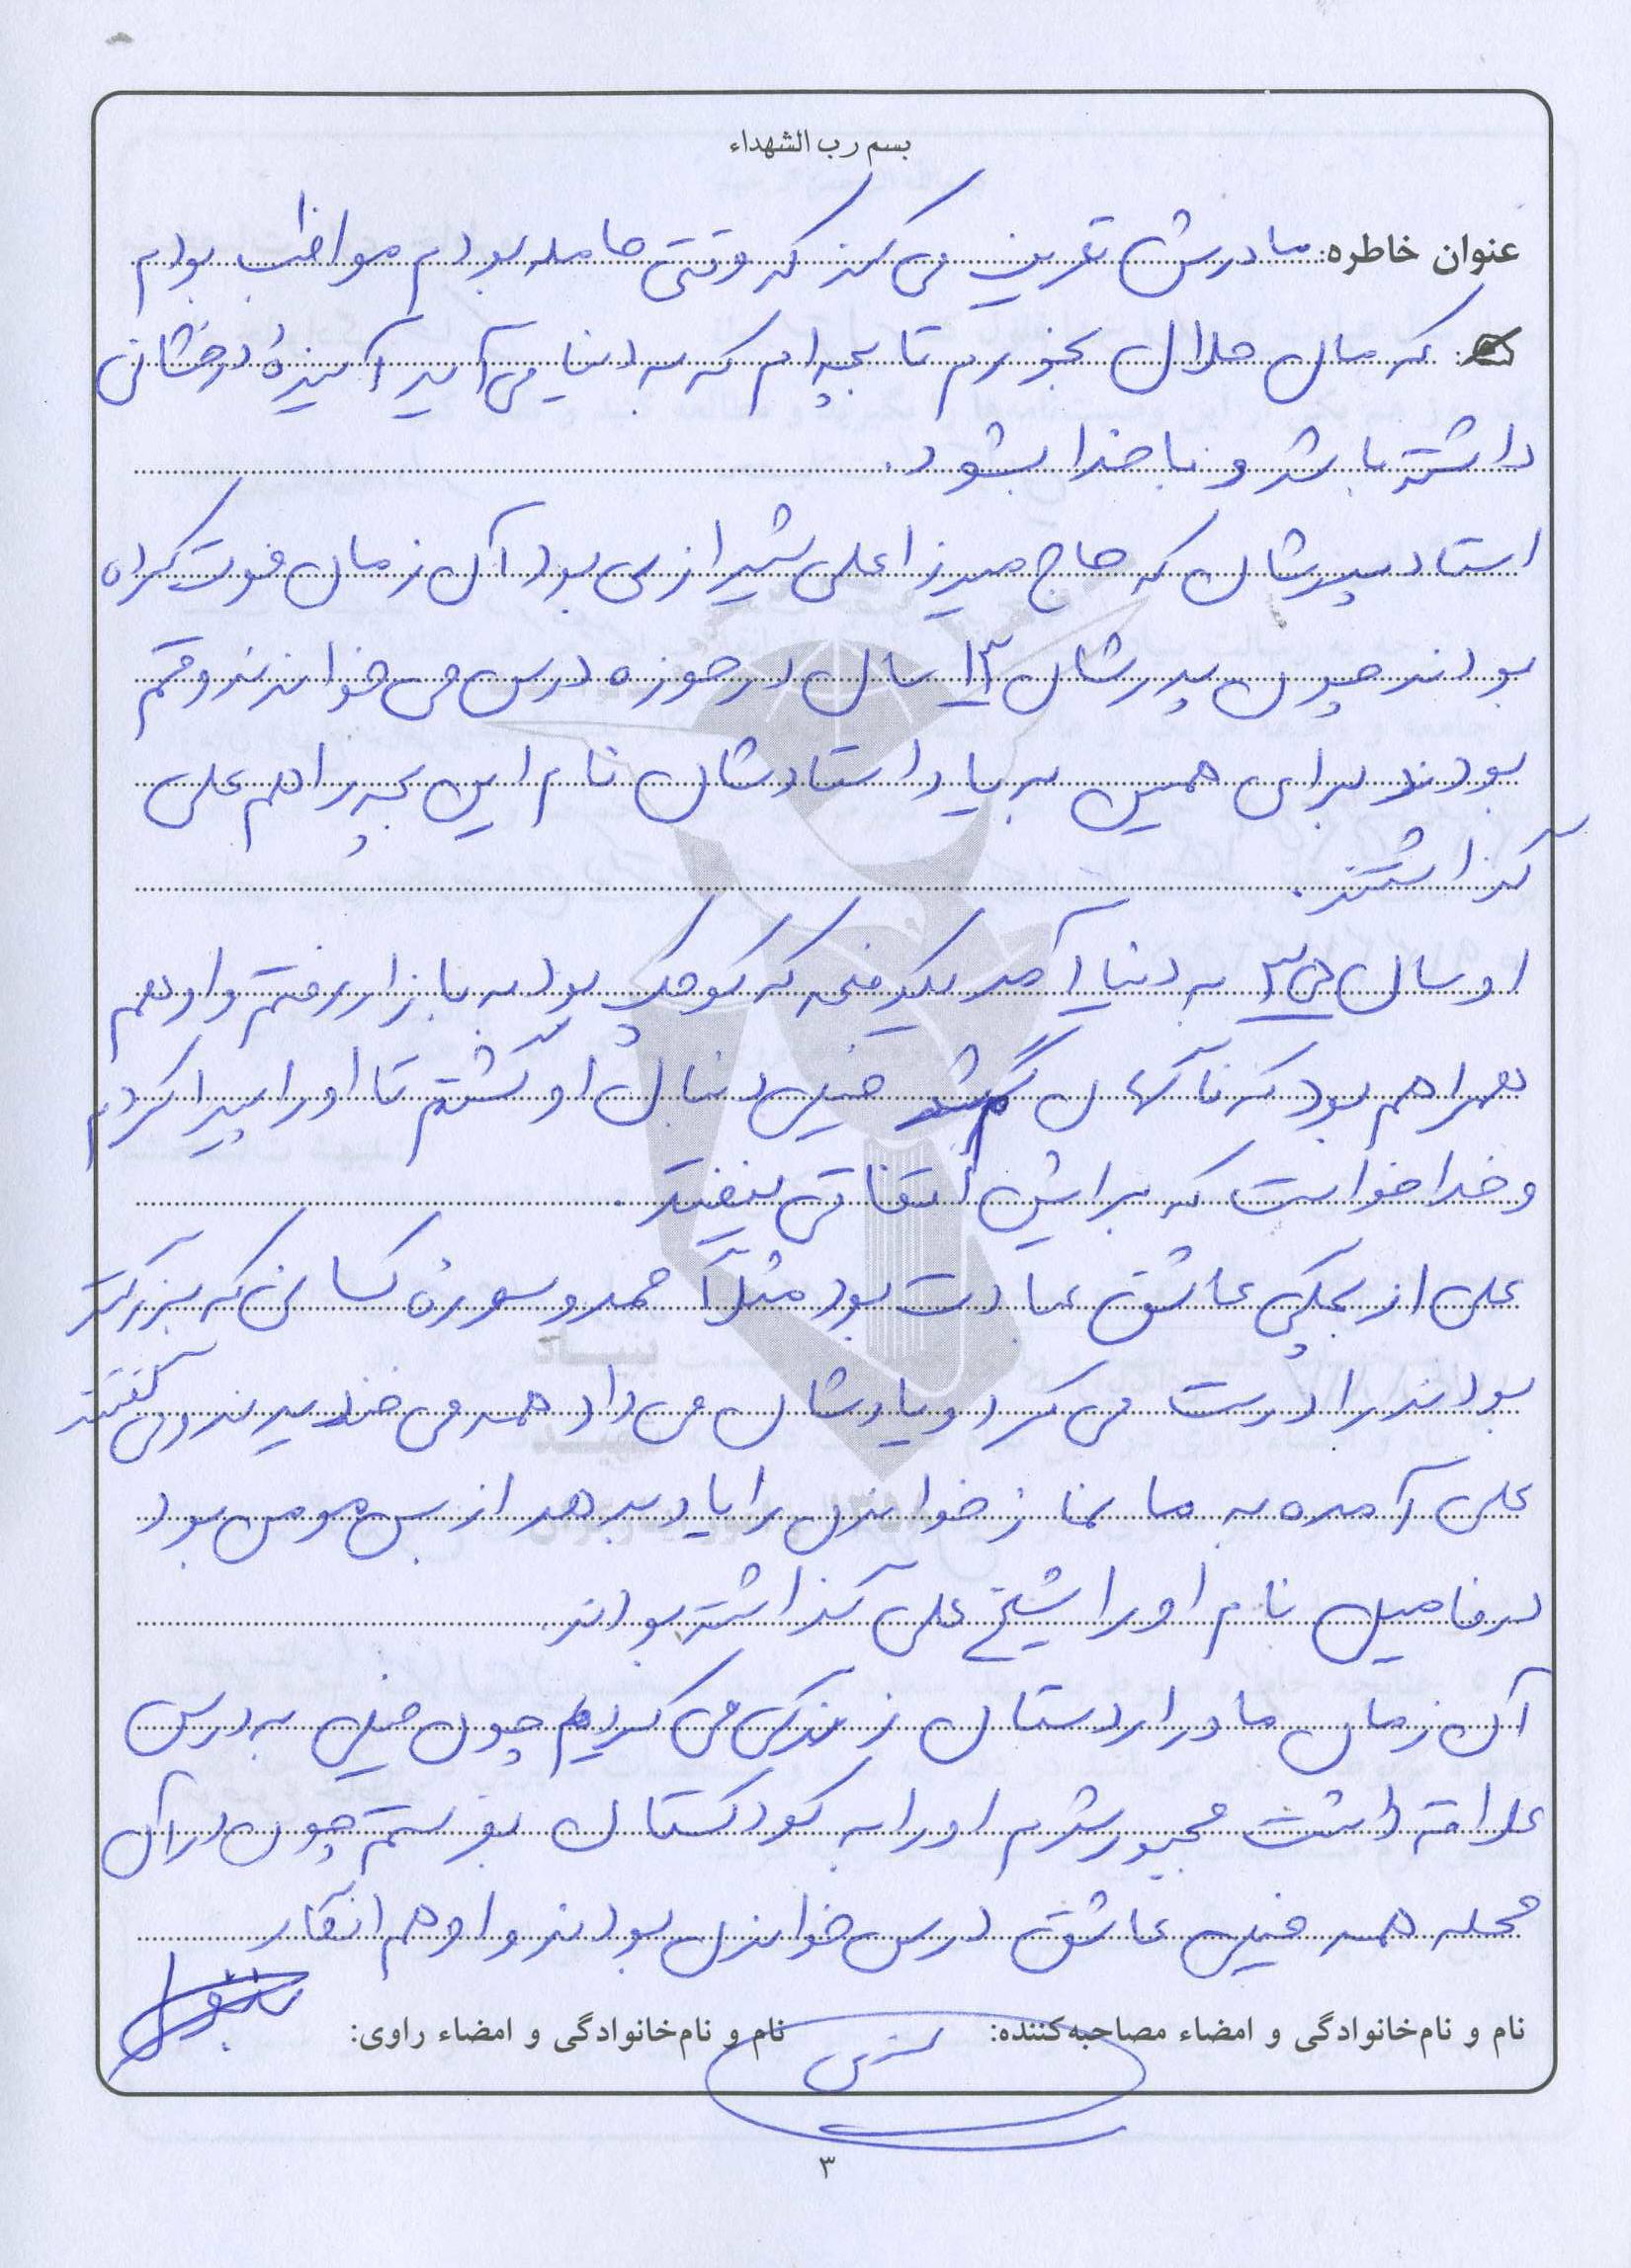 بسم رب الشهداء
عنوان خاطره: مادرش تعریف می کند که وقتی حامله بودم مواظب بودم
که مال حلال بخورم تا بچه ام که به دنیا می آید آینده درخشانی
داشته باشد و با خدا بشود.
استاد پدرشان که حاج میرزا علی شیرازی بود آن زمان فوت کرده
بودند چون پدرشان ۱۳ سال در حوزه درس می خواندند و قم
بودند برای همین به یاد استادشان نام این بچه را هم علی
گذاشتند.
او سال به دنیا آمد یکدفعه که کوچک بود به بازار رفتم و او هم
همراهم بود که ناگهان گم شد خیلی دنبال او گشتم تا او را پیدا کردم
و خدا خواست که برایش اتفاقی نیفتد.
علی از بچگی عاشق عبادت بود مثلاً حمد و سوره کسانی که بزرگتر
بودند را درست می کرد و یادشان می داد همه می خندیدند و می گفتند
علی آمده به ما نماز خواندن را یاد بدهد از بس مومن بود
در فامیل نام او را شیخ علی گذاشته بودند.
آن زمان ما در اردستان زندگی می کردیم چون خیلی به درس
علاقه داشت مجبور شدم او را به کودکستان بفرستم چون در آن
محله همه خیلی عاشق درس خواندن بودند و او هم انگار
نام و نام‌خانوادگی و امضاء مصاحبه‌کننده: نام و نام‌خانوادگی و امضاء راوی:
۳